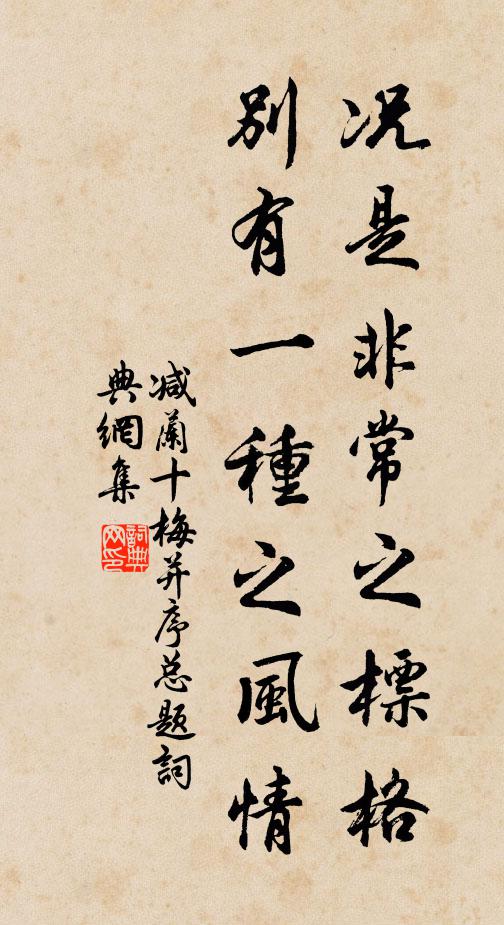 况是非常之標格
别有一種之風情
减蘭十梅并序总题詞
典網集
詞典
网印